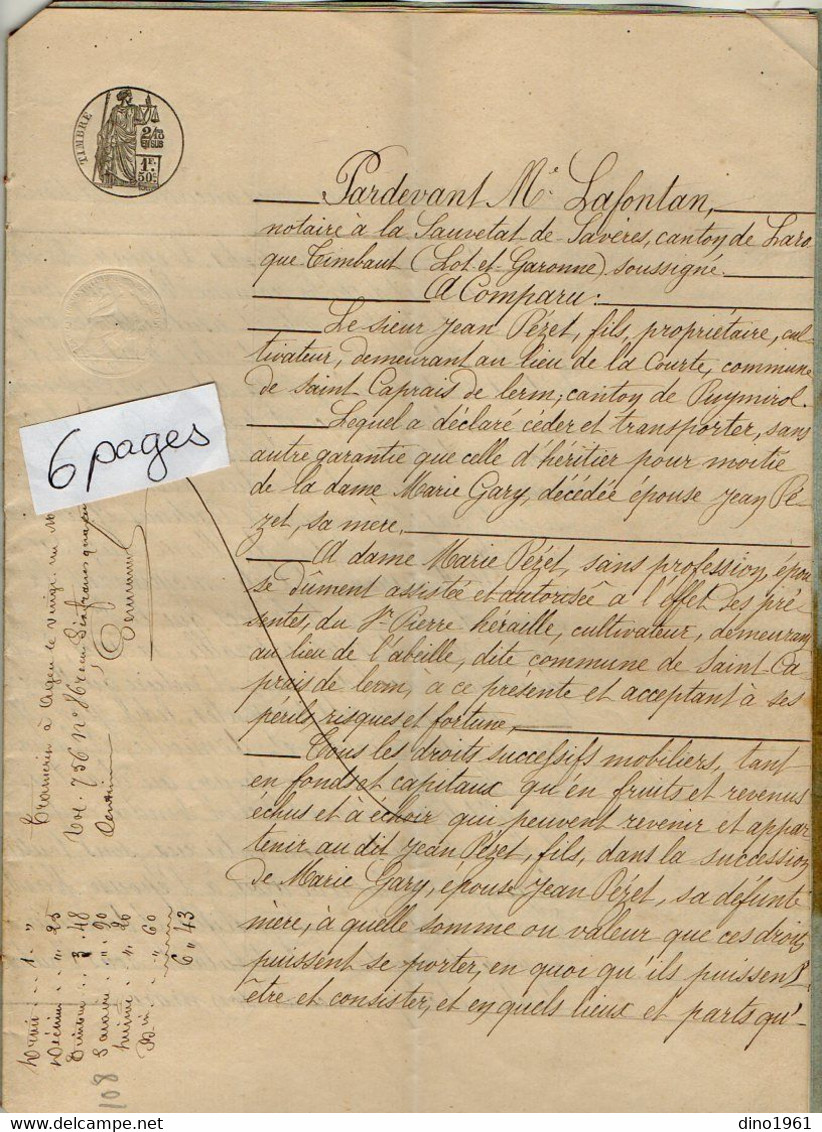 TIMBRE
2/10
EN SUS
1F.
50c.
Pardevant Me. Lafontan,
notaire à la Sauvetat de Savères, canton de Laro
que Timbaut (Lot et Garonne) soussigné.
A Comparu:
Le sieur Jean Pézet, fils, propriétaire, cul-
tivateur, demeurant au lieu de la Courte, commune
de Saint Caprais de lerm, canton de Puymirol.
Lequel a déclaré céder et transporter, sans
autre garantie que celle d'héritier pour moitié
de la dame Marie Gary, décédée épouse Jean Pé-
zet, sa mère.
A dame Marie Pézet, sans profession, épou
se dûment assistée et autorisée à l'effet des pré-
sentes, du Sr. Pierre heraille, cultivateur, demeurant
au lieu de l'abeille, dite commune de Saint Ca-
prais de lerm, à ce présente et acceptant à ses
périls, risques et fortune,
Tous les droits successifs mobiliers, tant
en fonds et capitaux qu'en fruits et revenus
échus et à échoir qui peuvent revenir et appar
tenir au dit Jean Pézet, fils, dans la succession
de Marie Gary, épouse Jean Pézet, sa défunte
mère, à quelle somme ou valeur que ces droits
puissent se porter, en quoi qu'ils puissent
être et consister, et en quels lieux et parts qu'-
6 pages
Transcrit à Agen le vingt
Vol. 756 No 86
centimes
1 "
" 25
3. 48
". 90
" 20
" 60
6 " 43
108
dino1961